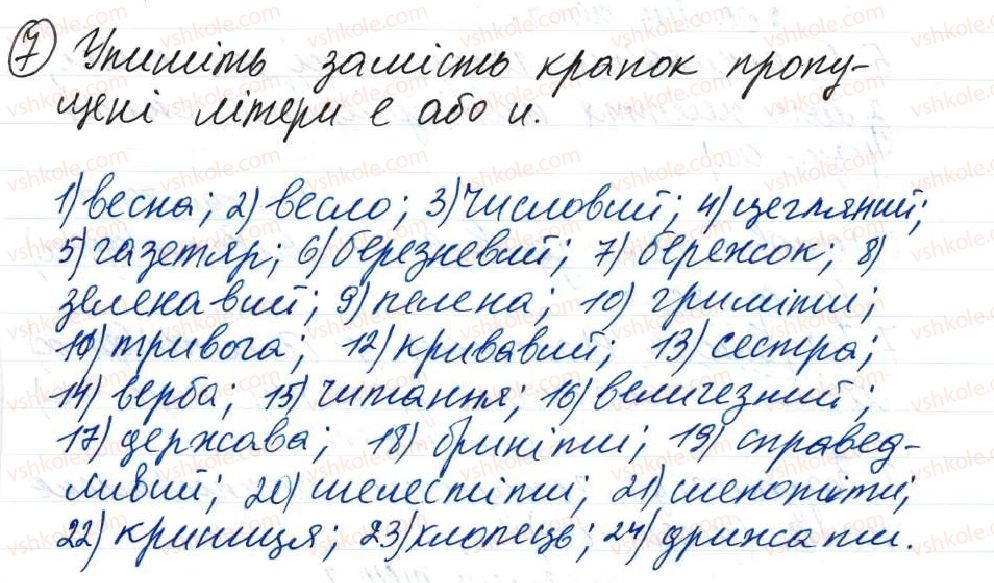 7 Упишіть замість крапок пропу-
щені літери е або и.
1) весна; 2) весло; 3) числовий; 4) цегляний;
5) газетяр; 6) березневий; 7) бережок; 8)
зеленавий; 9) пелена; 10) гриміти;
11) тривога; 12) кривавий; 13) сестра;
14) верба; 15) читання; 16) величезний;
17) держава; 18) бриніти; 19) справед-
ливий; 20) шелестіти; 21) шепотіти;
22) криниця; 23) хлопець; 24) дрижати.